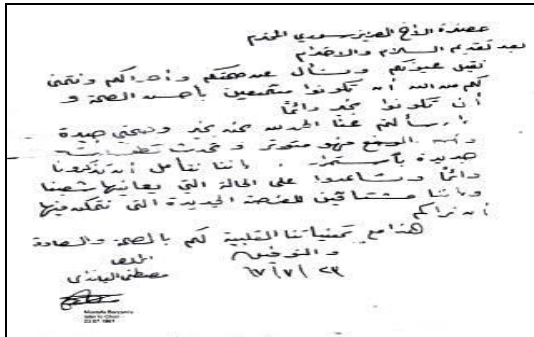 حضرة الأخ العزيز سوري المحترم
بعد تقديم السلام والاحترام
نقبل عيونكم ونسأل عن صحتكم وأحوالكم ونتمنى
لكم من الله أن تكونوا متمتعين بأحسن الصحة و
أن تكونوا بخير دائماً
إن سألتم عنا الحمد لله نحن بخير وصحتي جيدة
وأما الوضع فهو متوتر وتحدث
جديدة باستمرار. إننا نتأمل أن تذكرونا
دائماً وتساعدوا على الحالة التي يعانيها شعبنا
وإننا مشتاقين للفرصة الجديدة التي نتمكن فيها
أن نراكم
هذا مع تمنياتنا القلبية لكم بالصحة والسعادة
والتوفيق
المخلص
مصطفى البارزاني
٦٧/٧/٢٣
Mostafa Barzani's
letter to